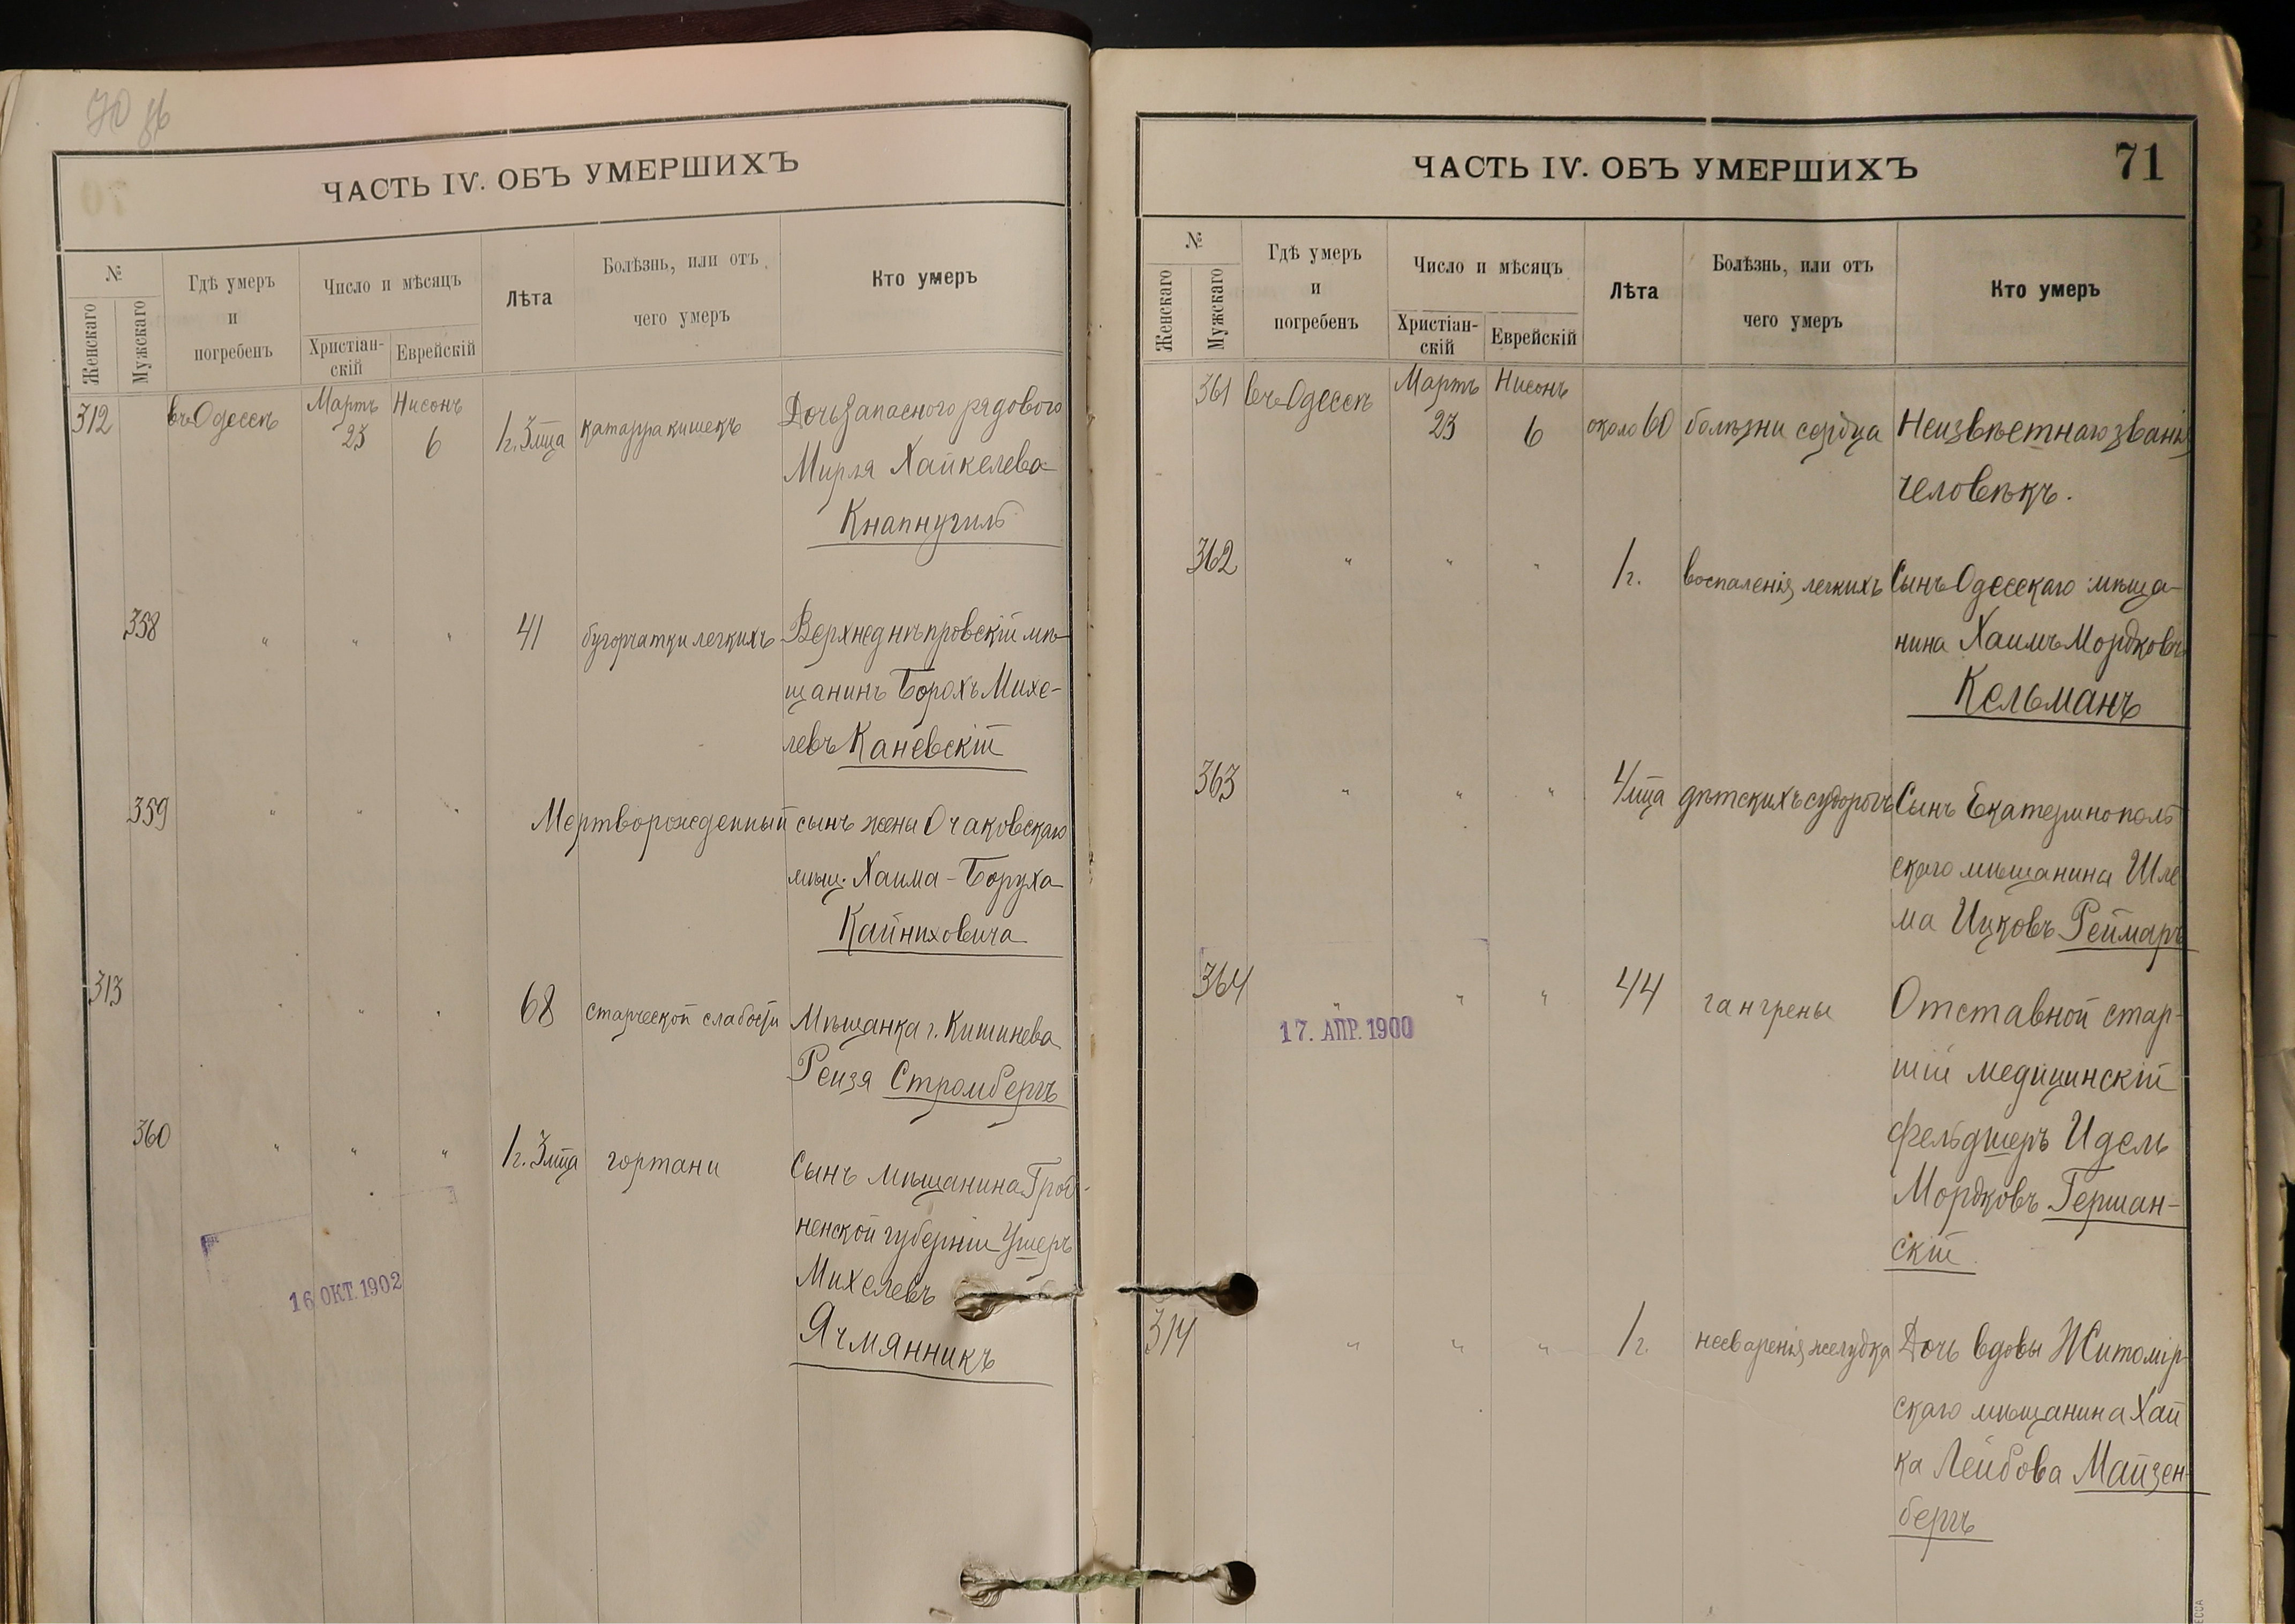 70 об
ЧАСТЬ IV. ОБЪ УМЕРШИХЪ
№
Женскаго
Мужскаго
Гдѣ умеръ
и
погребенъ
Число и мѣсяцъ
Христіан-
скій
Еврейскій
Лѣта
Болѣзнь, или отъ
чего умеръ
Кто умеръ
312 въ Одессѣ Мартъ 23 Нисонъ 6 1 г. 3 мца катарра кишекъ Дочь запасного рядового
Мирля Хайкелева
Кнапнугиль
358 " " " 41 бугорчатки легкихъ Верхнеднѣпровскій мѣ-
щанинъ Борохъ Михе-
левъ Каневскій
359 " " " Мертворожденный сынъ жены Очаковскаго
мѣщ. Хаима-Боруха
Кайниховича
313 " " " 68 старческой слабости Мѣщанка г. Кишинева
Рейзя Стромбергъ
360 " " " 1 г. 3 мца гортани Сынъ мѣщанина Грод-
ненской губерніи Ушеръ
Михелевъ
Ячмянникъ
16 ОКТ. 1902
ЧАСТЬ IV. ОБЪ УМЕРШИХЪ
71
№
Женскаго
Мужскаго
Гдѣ умеръ
и
погребенъ
Число и мѣсяцъ
Христіан-
скій
Еврейскій
Лѣта
Болѣзнь, или отъ
чего умеръ
Кто умеръ
361 въ Одессѣ Мартъ 23 Нисонъ 6 около 60 болѣзни сердца Неизвѣстнаго званія
человѣкъ.
362 " " " 1 г. воспаленія легкихъ Сынъ Одесскаго мѣща-
нина Хаимъ Мордковъ
Кельманъ
363 " " " 4 мца дѣтскихъ судорогъ Сынъ Екатеринополь
скаго мѣщанина Шле
ма Ицковъ Реймаръ
364 " " " 44 гангрены Отставной стар-
шій медицинскій
фельдшеръ Идель
Мордковъ Гершан-
скій
17. АПР. 1900
314 " " " 1 г. несваренія желудка Дочь вдовы Житомір
скаго мѣщанина Хай
ка Лейбова Майзен-
бергъ